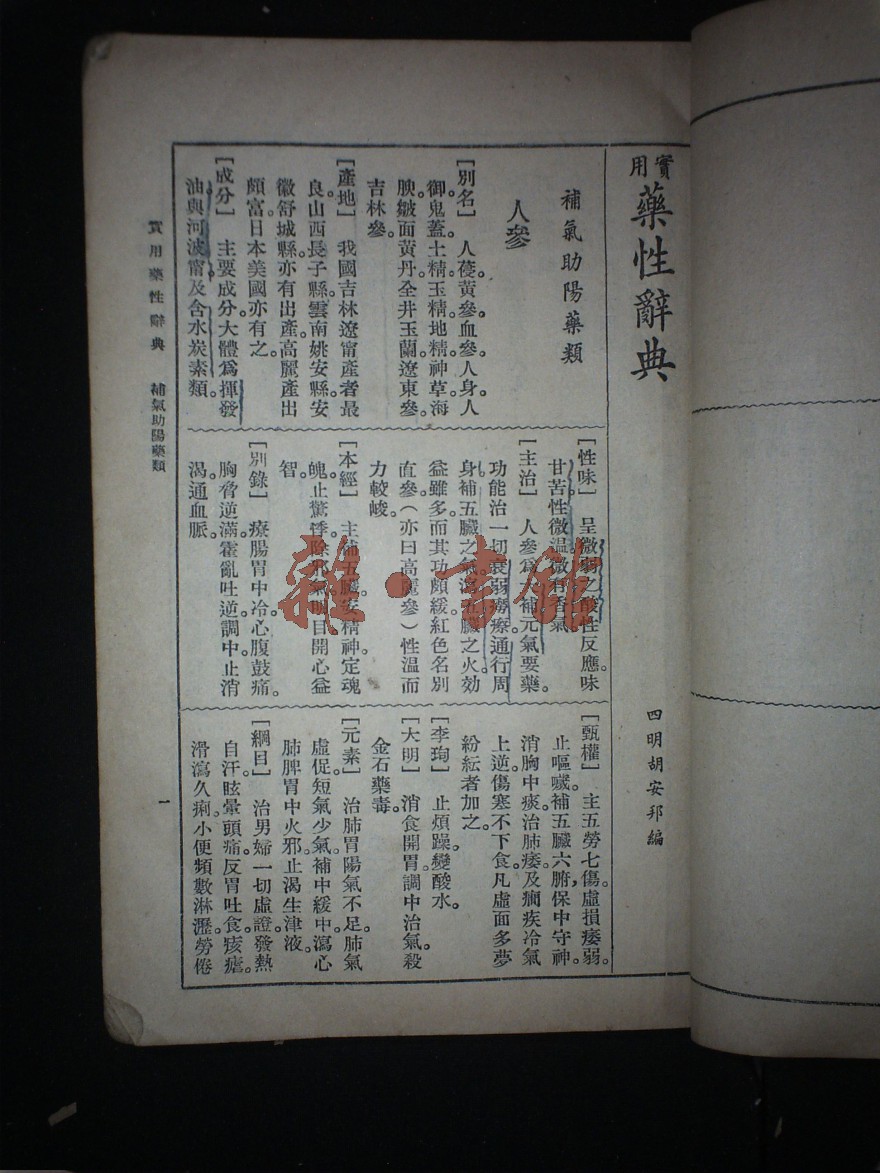 實用
藥性辭典
四明胡安邦編
補氣助陽藥類
人參
［別名］人葠。黃參。血參。人身。人
御。鬼蓋。土精。玉精。地精。神草。海
腴。皺面。黃丹。全井玉蘭。遼東參。
吉林參。
［產地］我國吉林遼甯產者最
良。山西長子縣。雲南姚安縣。安
徽舒城縣。亦有出產。高麗產出
頗富。日本美國亦有之。
［成分］主要成分。大體爲揮發
油與河波甯及含水炭素類。
［性味］呈微弱之酸性反應。味
甘苦。性微溫。微有香氣。
［主治］人參爲大補元氣要藥。
功能治一切衰弱癆瘵。通行周
身。補五臟之氣。瀉五臟之火。効
益雖多。而其功頗緩。紅色名別
直參（亦曰高麗參）性溫而
力較峻。
［本經］主補五臟。安精神。定魂
魄。止驚悸。除邪氣。明目。開心益
智。
［別錄］療腸胃中冷。心腹鼓痛。
胸脅逆滿。霍亂吐逆。調中。止消
渴。通血脈。
［甄權］主五勞七傷。虛損痿弱。
止嘔噦。補五臟六腑。保中守神。
消胸中痰。治肺痿及癇疾。冷氣
上逆。傷寒不下食。凡虛而多夢
紛紜者加之。
［李珣］止煩躁。變酸水。
［大明］消食開胃。調中治氣。殺
金石藥毒。
［元素］治肺胃陽氣不足。肺氣
虛促。短氣少氣。補中緩中。瀉心
肺脾胃中火邪。止渴生津液。
［綱目］治男婦一切虛證。發熱
自汗。眩暈頭痛。反胃吐食。痎瘧。
滑瀉久痢。小便頻數淋瀝。勞倦
實用藥性辭典 補氣助陽藥類
一
雜·书館